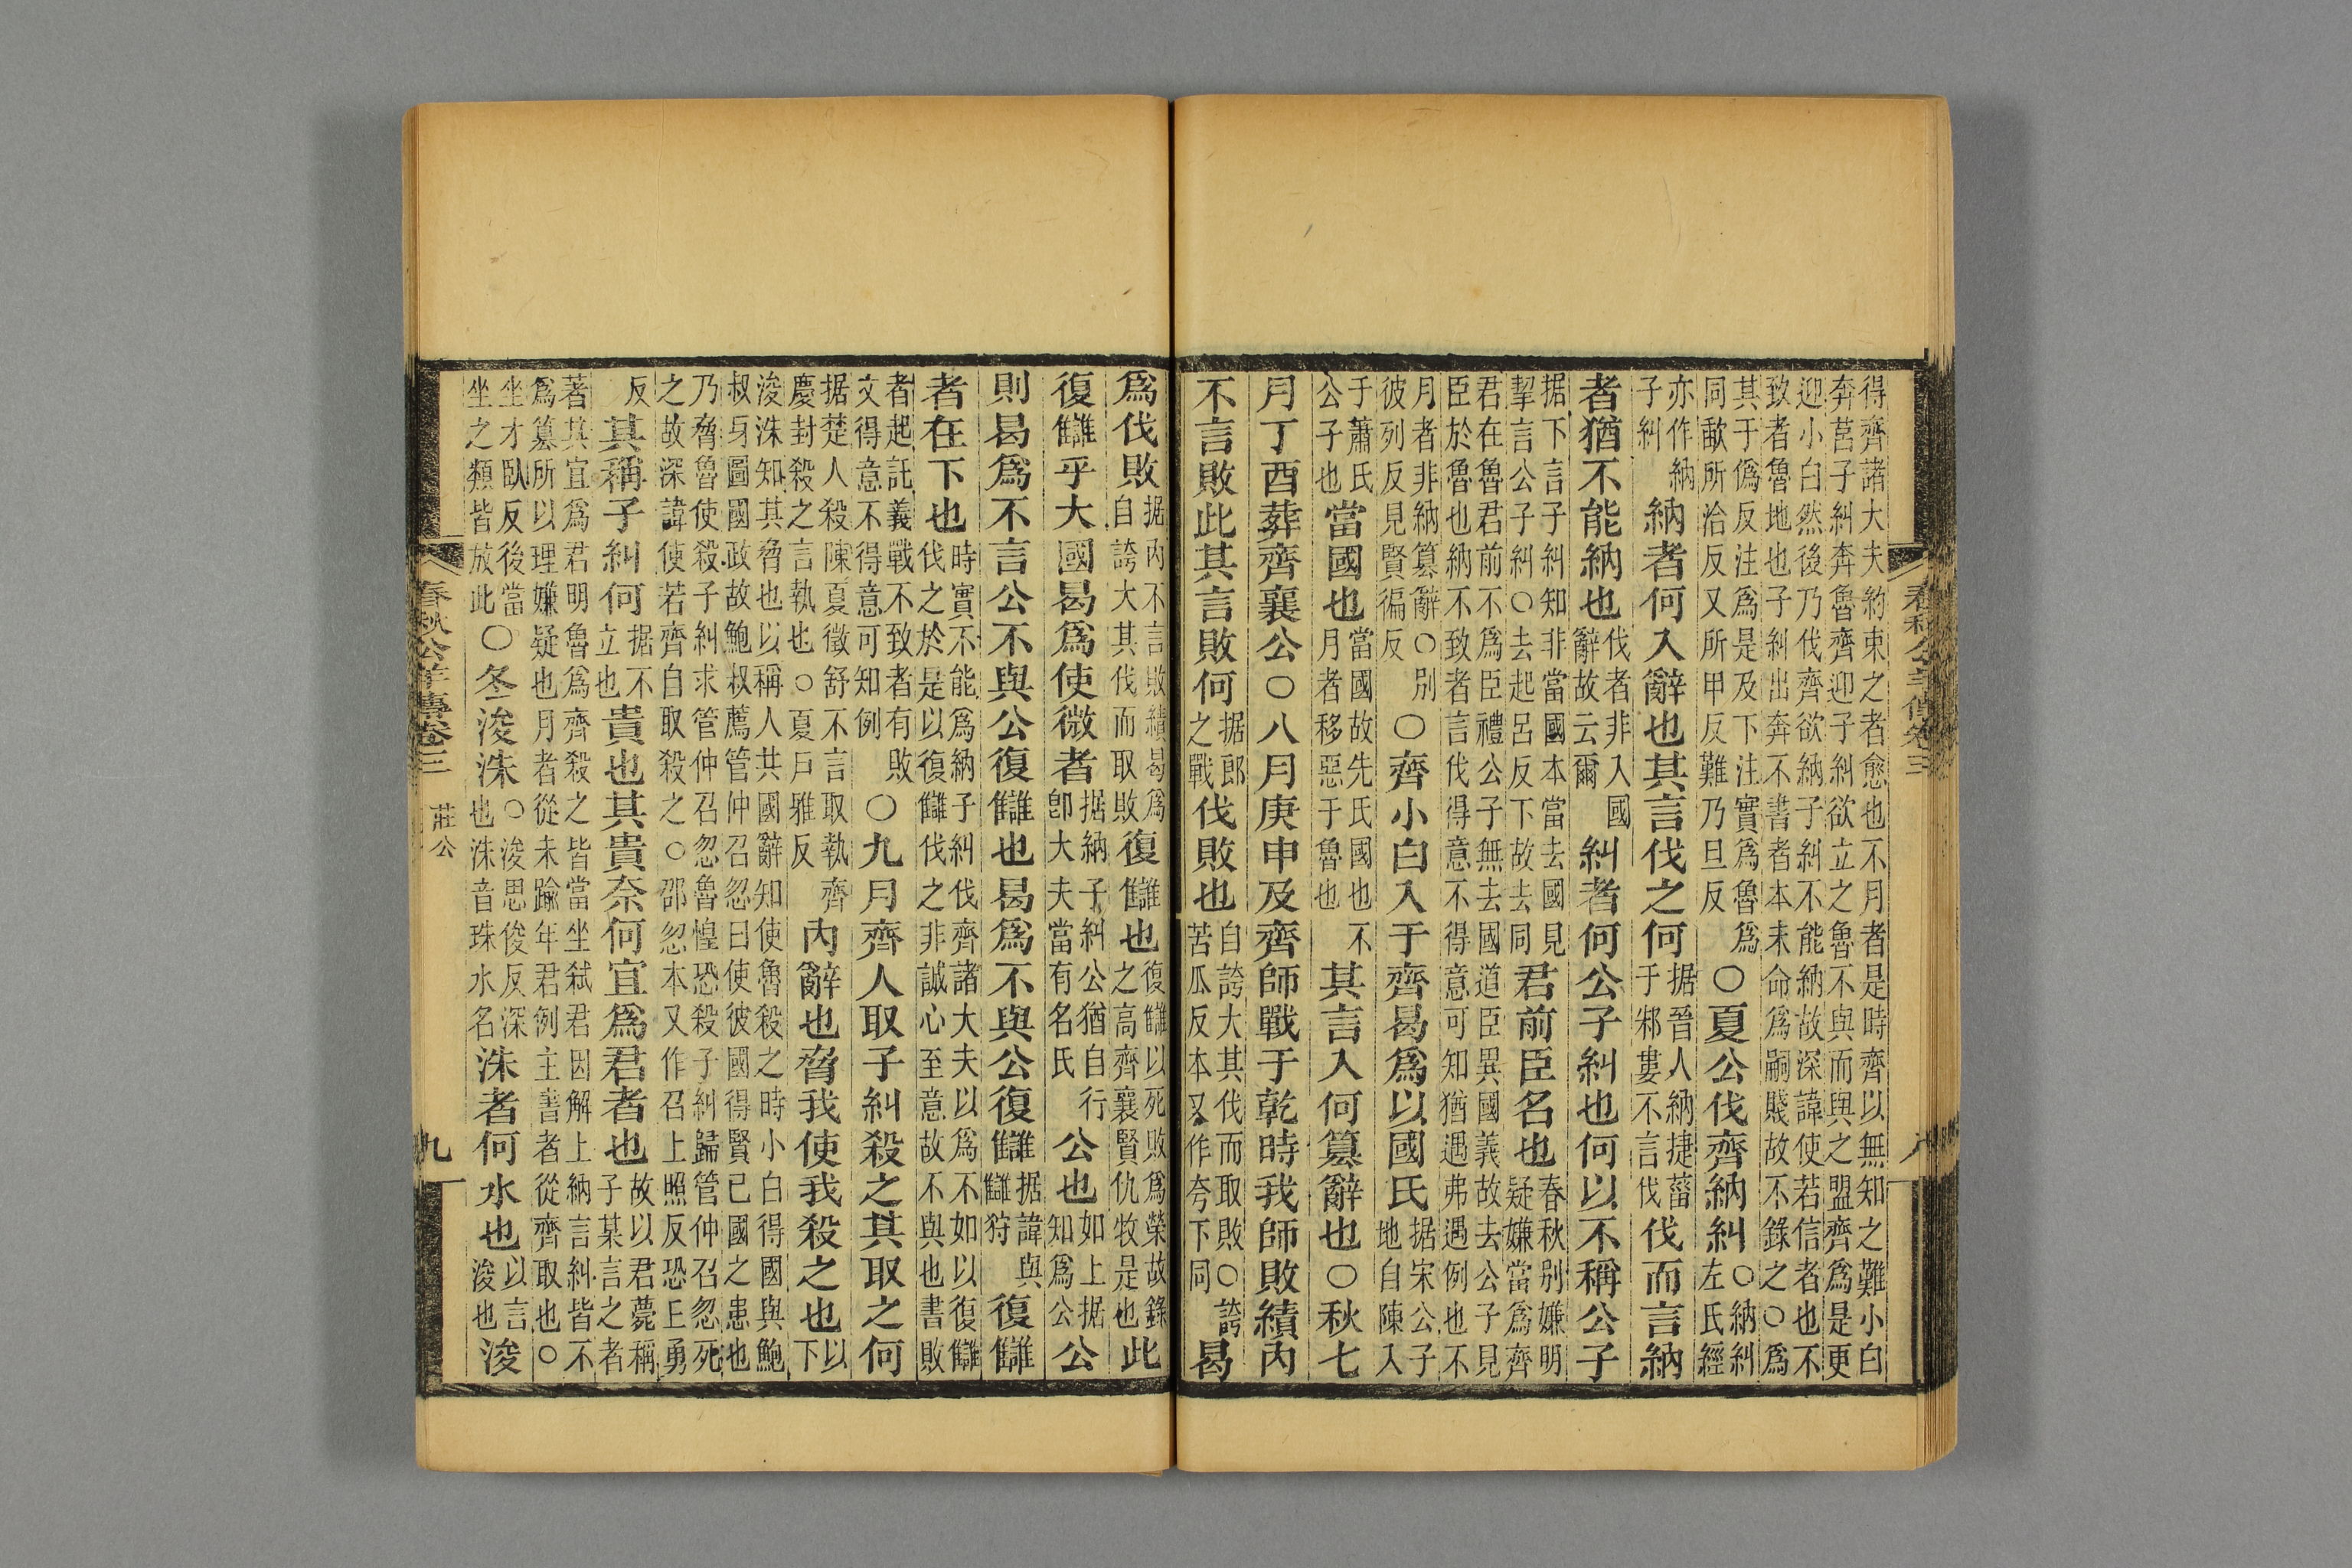 得齊諸大夫約束之者愈也不月者是時齊以無知之難小白
奔莒子糾奔魯齊迎子糾欲立之魯不與而與之盟齊爲是更
迎小白然後乃伐齊欲納子糾不能納故深諱使若信者也不
致者魯地也子糾出奔不書者本未命爲嗣賤故不錄之○爲
其于僞反注爲是及下注實爲魯爲同歃所洽反又所甲反難乃旦反○夏公伐齊納糾○納糾左氏經
亦作納子糾納者何入辭也其言伐之何据晉人納捷菑于邾婁不言伐伐而言納
者猶不能納也伐者非入國辭故云爾糾者何公子糾也何以不稱公子
据下言子糾知非當國本當去國見挈言公子糾○去起呂反下故去同君前臣名也春秋別嫌明疑嫌當爲齊
君在魯君前不爲臣禮公子無去國道臣異國義故去公子見
臣於魯也納不致者言伐得意不得意可知猶遇弗遇例也不
月者非納篡辭○別彼列反見賢徧反○齊小白入于齊曷爲以國氏据宋公子地自陳入
于蕭氏公子也當國也當國故先氏國也不月者移惡于魯也其言入何篡辭也○秋七
月丁酉葬齊襄公○八月庚申及齊師戰于乾時我師敗績內
不言敗此其言敗何据郎之戰伐敗也自誇大其伐而取敗○誇苦瓜反本又作夸下同曷
春秋公羊傳卷三
八
爲伐敗据內不言敗績曷爲自誇大其伐而取敗復讎也復讎以死敗爲榮故錄之高齊襄賢仇牧是也此
復讎乎大國曷爲使微者据納子糾公猶自行卽大夫當有名氏公也如上据知爲公公
則曷爲不言公不與公復讎也曷爲不與公復讎据諱與讎狩復讎
者在下也時實不能爲納子糾伐齊諸大夫以爲不如以復讎伐之於是以復讎伐之非誠心至意故不與也書敗
者起託義戰不致者有敗文得意不得意可知例○九月齊人取子糾殺之其取之何
据楚人殺陳夏徵舒不言取執齊慶封殺之言執也○夏戶雅反內辭也脅我使我殺之也以下
浚洙知其脅也以稱人共國辭知使魯殺之時小白得國與鮑
叔牙圖國政故鮑叔薦管仲召忽曰使彼國得賢已國之患也
乃脅魯使殺子糾求管仲召忽魯惶恐殺子糾歸管仲召忽死
之故深諱使若齊自取殺之○邵忽本又作召上照反恐丘勇
反其稱子糾何据不立也貴也其貴奈何宜爲君者也故以君薨稱子某言之者
著其宜爲君明魯爲齊殺之皆當坐弒君因解上納言糾皆不
爲篡所以理嫌疑也月者從未踰年君例主書者從齊取也○
坐才臥反後當坐之類皆放此○冬浚洙○浚思俊反深也洙音珠水名洙者何水也以言浚也浚
春秋公羊傳卷三
莊公
九